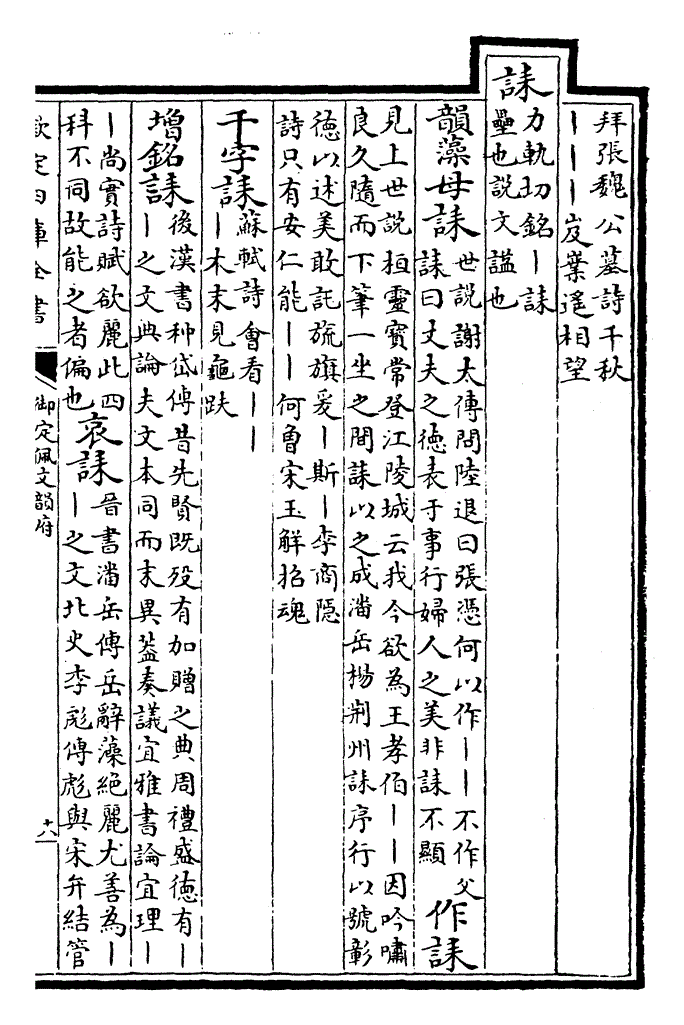 拜張魏公墓詩千秋
｜｜｜岌業遥相望
誄
力軌切銘｜誄
壘也說文諡也
韻藻母誄
世說謝太傅問陸退曰張憑何以作｜｜不作父
誄曰丈夫之徳表于事行婦人之美非誄不顯
作誄
見上世說桓靈寳常登江陵城云我今欲為王孝伯｜｜因吟嘯
良久隨而下筆一坐之間誄以之成潘岳楊荆州誄序行以號彰
徳以述美敢託旐旗爰｜斯｜李商隱
詩只有安仁能｜｜何曾宋玉解招魂
千字誄
蘇軾詩會看｜｜
｜木末見龜趺
增銘誄
後漢書种岱傳昔先賢既殁有加贈之典周禮盛徳有｜
｜之文典論夫文本同而末異葢奏議宜雅書論宜理｜
｜尚實詩賦欲麗此四
科不同故能之者偏也
哀誄
晉書潘岳傳岳辭藻絶麗尤善為｜
｜之文北史李彪傳彪與宋弁結管
欽定四庫全書
御定佩文韻府
十八